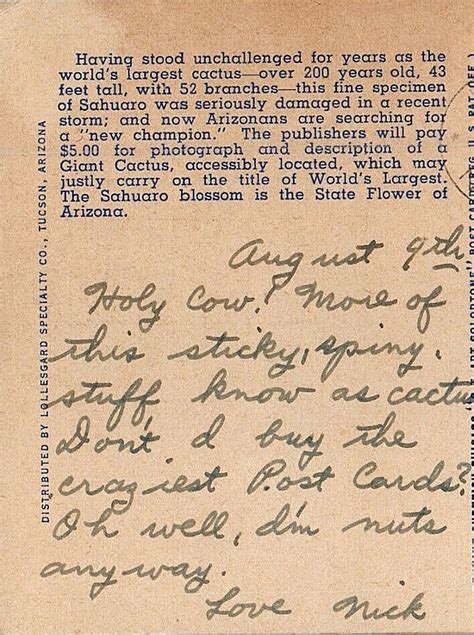 Having stood unchallenged for years as the
world's largest cactus—over 200 years old, 43
feet tall, with 52 branches—this fine specimen
of Sahuaro was seriously damaged in a recent
storm; and now Arizonans are searching for
a "new champion." The publishers will pay
$5.00 for photograph and description of a
Giant Cactus, accessibly located, which may
justly carry on the title of World's Largest.
The Sahuaro blossom is the State Flower of
Arizona.
DISTRIBUTED BY LOLLESGARD SPECIALTY CO., TUCSON, ARIZONA
August 9th
Holy Cow! More of
this sticky, spiny,
stuff know as cactus
Don't I buy the
craziest Post Cards?
Oh well, I'm nuts
anyway.
Love Nick